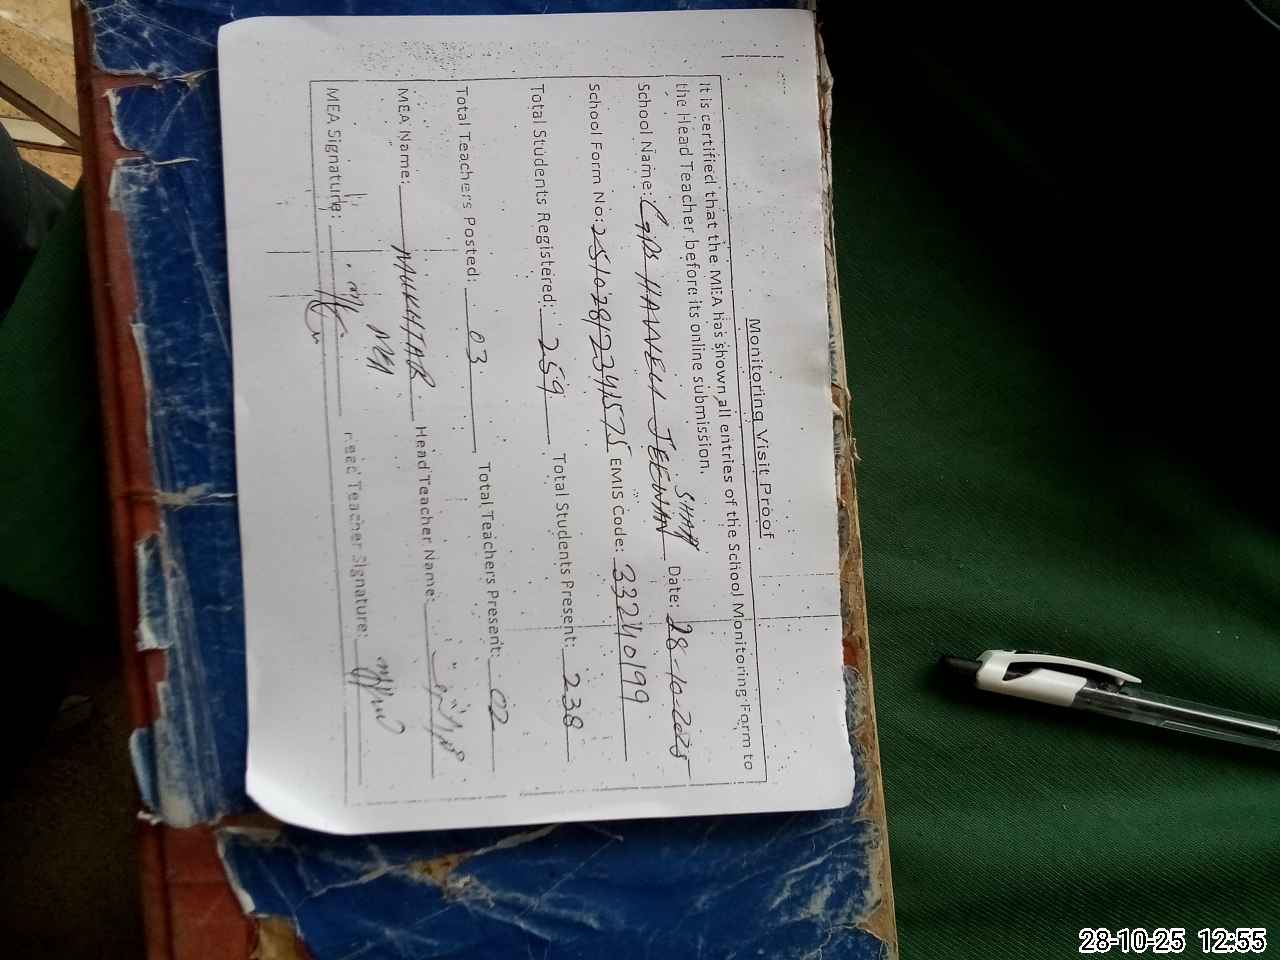 Monitoring Visit Proof
It is certified that the MEA has shown all entries of the School Monitoring Form to
the Head Teacher before its online submission.
School Name: GPS HAVELI JEEWAN SHAH Date: 28-10-2025
School Form No: EMIS Code: 33240199
Total Students Registered: 259 Total Students Present: 238
Total Teachers Posted: 03 Total Teachers Present: 02
MEA Name: MUKHTAR Head Teacher Name:
MEA Signature: Head Teacher Signature:
28-10-25 12:55